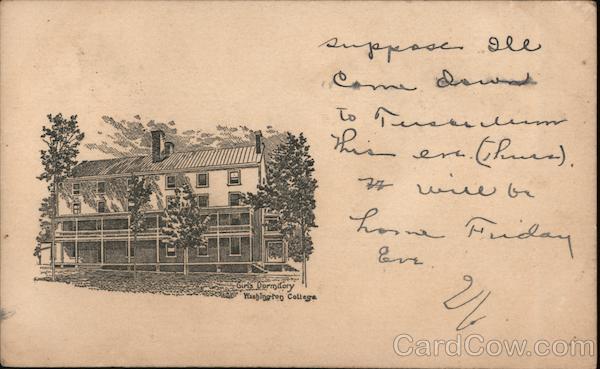 suppose Ill
Come down
to Tusculum
this eve. (Thurs).
will be
home Friday
Eve.
Girls Dormitory
Washington College
CardCow.com